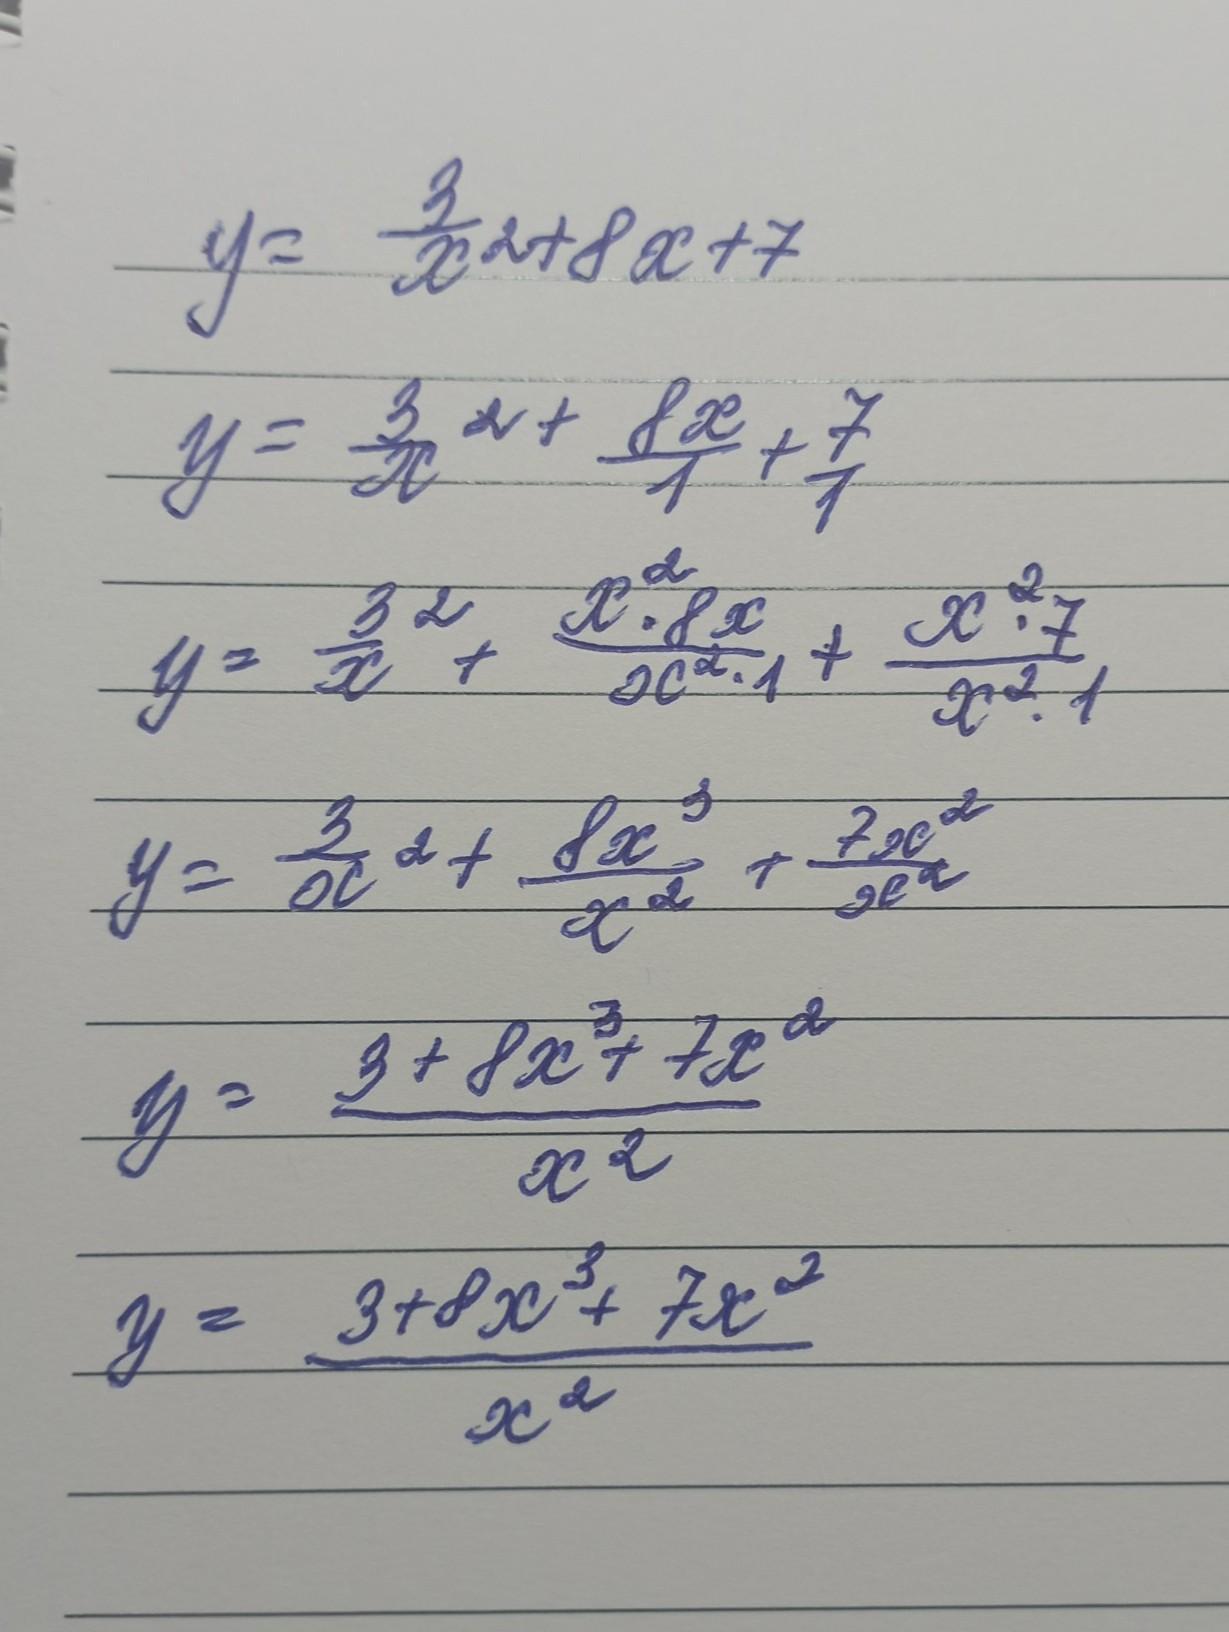 y = 3/x 2 + 8x + 7
y = 3/x ² + 8x/1 + 7/1
y = 3/x ² + x²·8x/x²·1 + x²·7/x²·1
y = 3/x ² + 8x³/x² + 7x²/x²
y = 3 + 8x³ + 7x²/x²
y = 3 + 8x³ + 7x²/x²